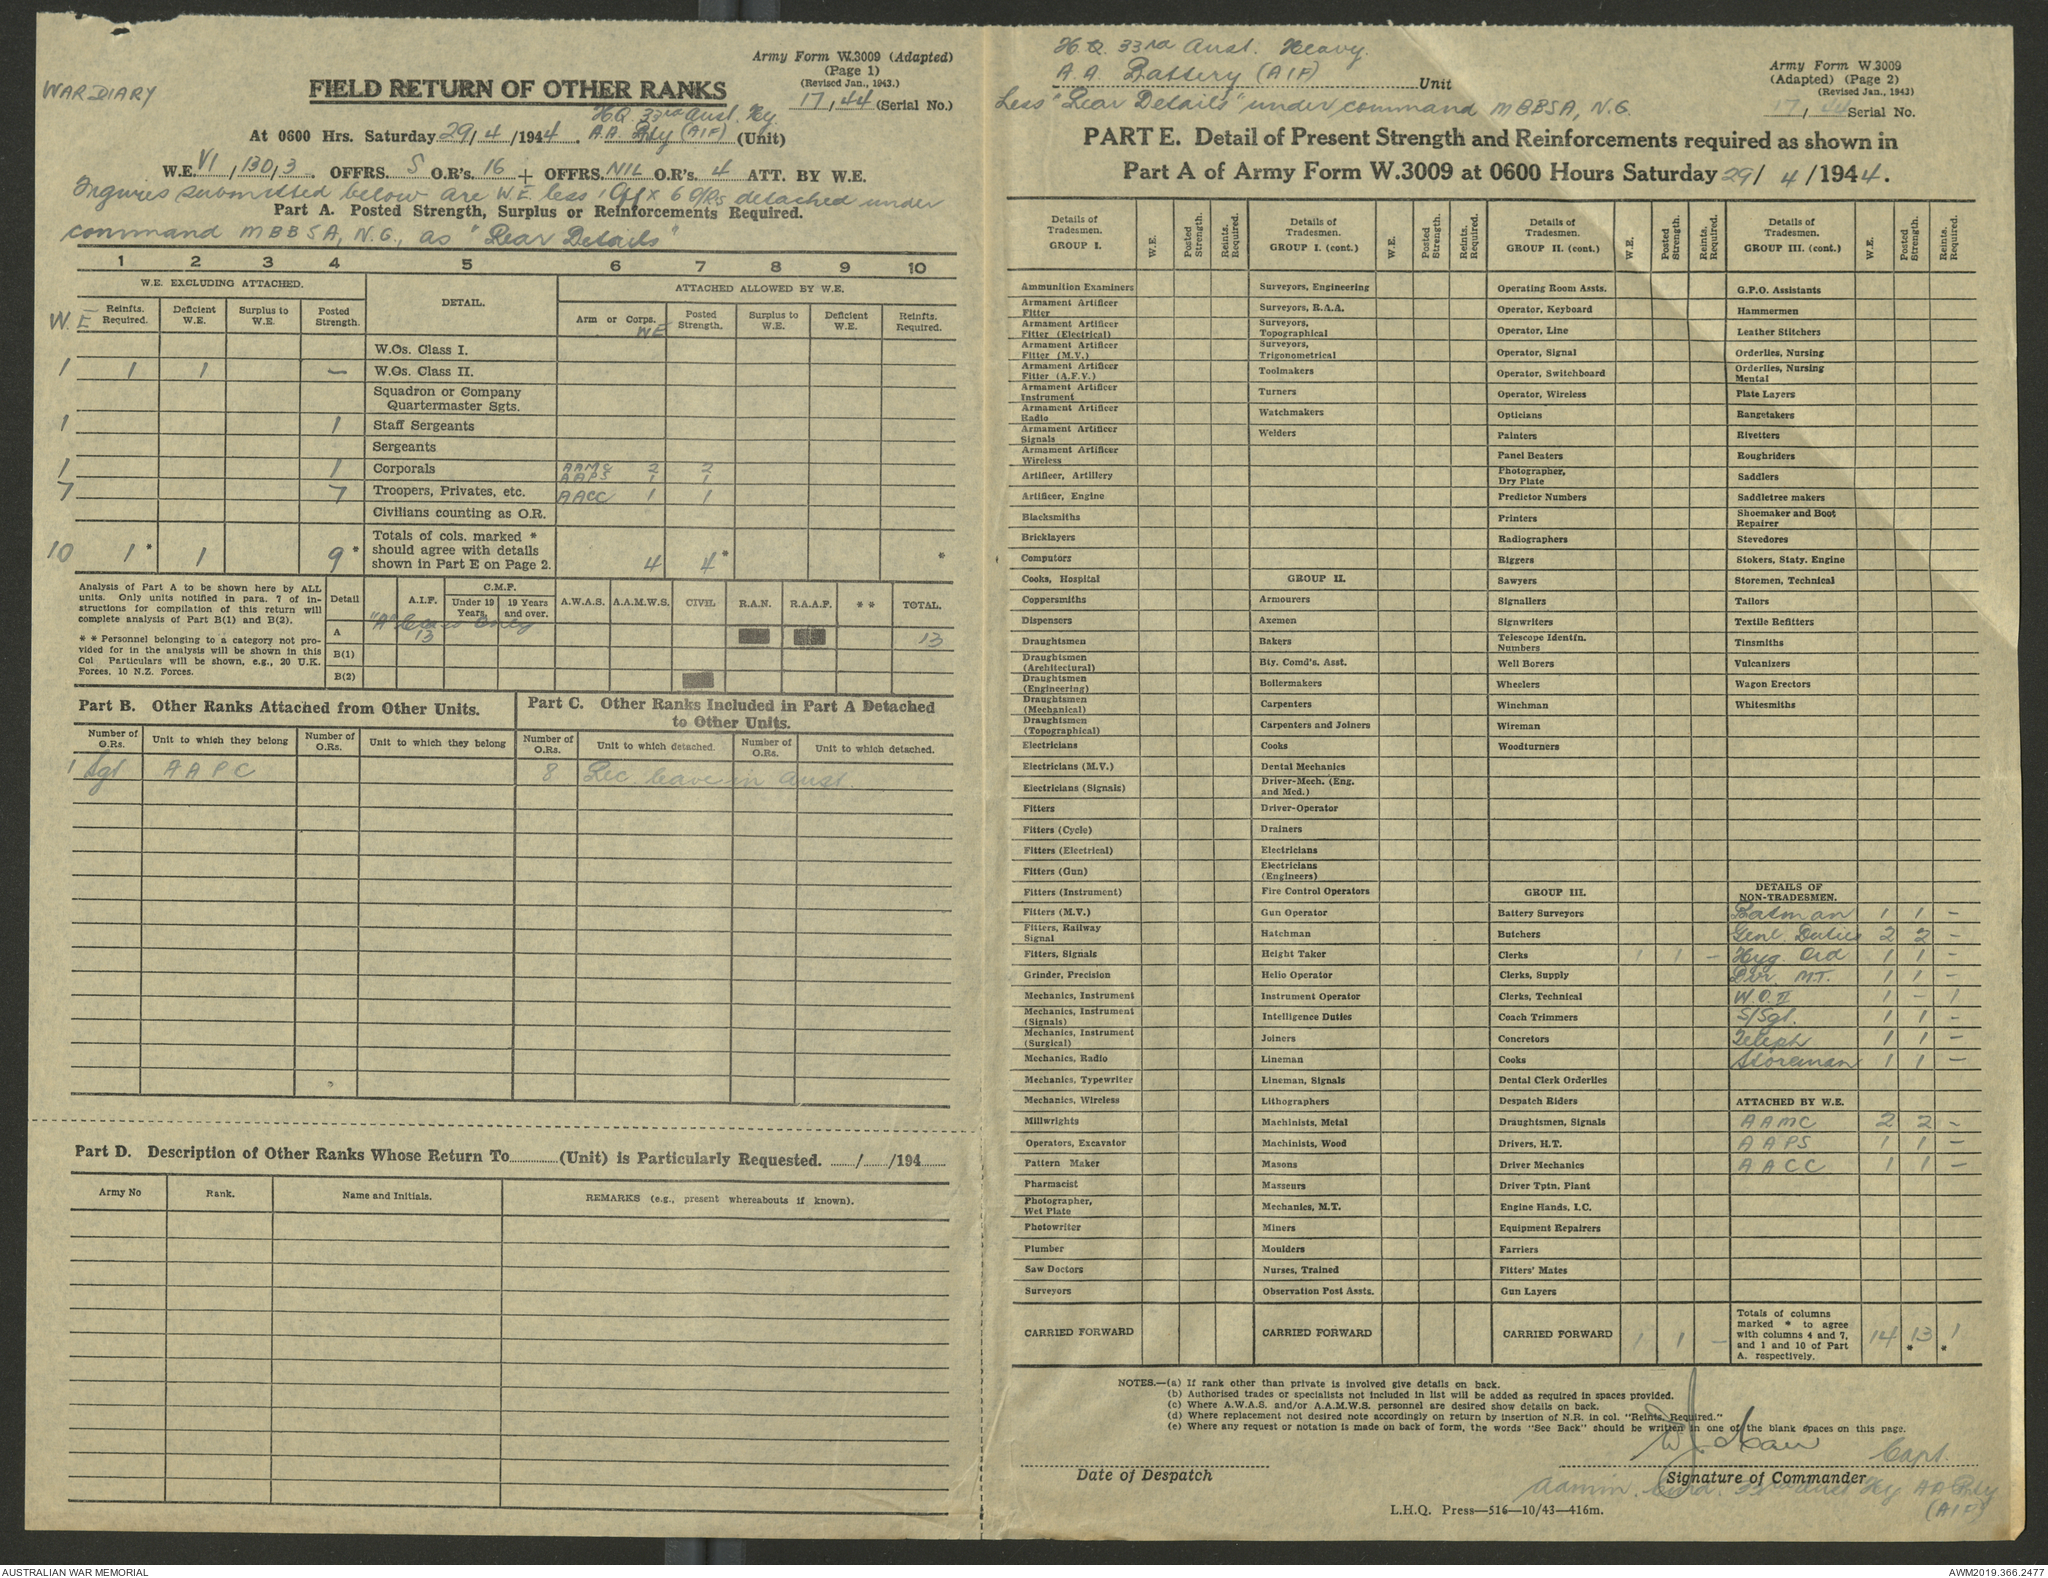 Army Form W.3009 (Adapted)
(Page 1)
(Revised Jan., 1943.)
WAR DIARY
FIELD RETURN OF OTHER RANKS
17, 44 (Serial No.)
H.Q. 33rd Aust. Hy.
At 0600 Hrs. Saturday 29/4/1944. A.A. Bty (AIF) (Unit)
W.E. VI, 130, 3. OFFRS. 5 O.R's. 16 + OFFRS. NIL O.R's. 4 ATT. BY W.E.
Figures submitted below are W.E. less 1 Off x 6 O/Rs detached under
Part A. Posted Strength, Surplus or Reinforcements Required.
command MBBSA, N.G., as "Rear Details"
1 2 3 4 5 6 7 8 9 10
W.E. EXCLUDING ATTACHED. DETAIL. ATTACHED ALLOWED BY W.E.
W.E Reinfts. Required. Deficient W.E. Surplus to W.E. Posted Strength. Arm or Corps. WE Posted Strength. Surplus to W.E. Deficient W.E. Reinfts. Required.
W.Os. Class I.
1 1 1 — W.Os. Class II.
Squadron or Company
Quartermaster Sgts.
1 1 Staff Sergeants
Sergeants
1 1 Corporals AAMC 2 2
AAPS 1 1
7 7 Troopers, Privates, etc. AACC 1 1
Civilians counting as O.R.
Totals of cols. marked *
10 1* 1 9* should agree with details
shown in Part E on Page 2. 4 4* *
Analysis of Part A to be shown here by ALL
units. Only units notified in para. 7 of in-
structions for compilation of this return will
complete analysis of Part B(1) and B(2).
* * Personnel belonging to a category not pro-
vided for in the analysis will be shown in this
Col Particulars will be shown, e.g., 20 U.K.
Forces, 10 N.Z. Forces.
Detail A.I.F. C.M.F. Under 19 Years. 19 Years and over. A.W.A.S. A.A.M.W.S. CIVIL R.A.N. R.A.A.F. * * TOTAL.
"A" Class Only
A 13 13
B(1)
B(2)
Part B. Other Ranks Attached from Other Units.
Part C. Other Ranks Included in Part A Detached
to Other Units.
Number of O.Rs. Unit to which they belong Number of O.Rs. Unit to which they belong Number of O.Rs. Unit to which detached. Number of O.Rs. Unit to which detached.
1 Sgt AAPC 8 Rec leave in Aust.
Part D. Description of Other Ranks Whose Return To............(Unit) is Particularly Requested. ....../....../194......
Army No Rank. Name and Initials. REMARKS (e.g., present whereabouts if known).
H.Q. 33rd Aust. Heavy.
A.A. Battery (AIF) Unit
Less "Rear Details" under command MBBSA, N.G.
Army Form W.3009
(Adapted) (Page 2)
(Revised Jan., 1943)
17, 44 Serial No.
PART E. Detail of Present Strength and Reinforcements required as shown in
Part A of Army Form W.3009 at 0600 Hours Saturday 29/4/1944.
Details of Tradesmen. GROUP I. W.E. Posted Strength. Reints. Required.
Ammunition Examiners
Armament Artificer Fitter
Armament Artificer Fitter (Electrical)
Armament Artificer Fitter (M.V.)
Armament Artificer Fitter (A.F.V.)
Armament Artificer Instrument
Armament Artificer Radio
Armament Artificer Signals
Armament Artificer Wireless
Artificer, Artillery
Artificer, Engine
Blacksmiths
Bricklayers
Computors
Cooks, Hospital
Coppersmiths
Dispensers
Draughtsmen
Draughtsmen (Architectural)
Draughtsmen (Engineering)
Draughtsmen (Mechanical)
Draughtsmen (Topographical)
Electricians
Electricians (M.V.)
Electricians (Signals)
Fitters
Fitters (Cycle)
Fitters (Electrical)
Fitters (Gun)
Fitters (Instrument)
Fitters (M.V.)
Fitters, Railway Signal
Fitters, Signals
Grinder, Precision
Mechanics, Instrument
Mechanics, Instrument (Signals)
Mechanics, Instrument (Surgical)
Mechanics, Radio
Mechanics, Typewriter
Mechanics, Wireless
Millwrights
Operators, Excavator
Pattern Maker
Pharmacist
Photographer, Wet Plate
Photowriter
Plumber
Saw Doctors
Surveyors
CARRIED FORWARD
Details of Tradesmen. GROUP I. (cont.) W.E. Posted Strength. Reints. Required.
Surveyors, Engineering
Surveyors, R.A.A.
Surveyors, Topographical
Surveyors, Trigonometrical
Toolmakers
Turners
Watchmakers
Welders
GROUP II.
Armourers
Axemen
Bakers
Bty. Comd's. Asst.
Boilermakers
Carpenters
Carpenters and Joiners
Cooks
Dental Mechanics
Driver-Mech. (Eng. and Med.)
Driver-Operator
Drainers
Electricians
Electricians (Engineers)
Fire Control Operators
Gun Operator
Hatchman
Height Taker
Helio Operator
Instrument Operator
Intelligence Duties
Joiners
Lineman
Lineman, Signals
Lithographers
Machinists, Metal
Machinists, Wood
Masons
Masseurs
Mechanics, M.T.
Miners
Moulders
Nurses, Trained
Observation Post Assts.
CARRIED FORWARD
Details of Tradesmen. GROUP II. (cont.) W.E. Posted Strength. Reints. Required.
Operating Room Assts.
Operator, Keyboard
Operator, Line
Operator, Signal
Operator, Switchboard
Operator, Wireless
Opticians
Painters
Panel Beaters
Photographer, Dry Plate
Predictor Numbers
Printers
Radiographers
Riggers
Sawyers
Signallers
Signwriters
Telescope Identfn. Numbers
Well Borers
Wheelers
Winchman
Wireman
Woodturners
GROUP III.
Battery Surveyors
Butchers
Clerks 1 1 —
Clerks, Supply
Clerks, Technical
Coach Trimmers
Concretors
Cooks
Dental Clerk Orderlies
Despatch Riders
Draughtsmen, Signals
Drivers, H.T.
Driver Mechanics
Driver Tptn. Plant
Engine Hands, I.C.
Equipment Repairers
Farriers
Fitters' Mates
Gun Layers
CARRIED FORWARD 1 1 —
Details of Tradesmen. GROUP III. (cont.) W.E. Posted Strength. Reints. Required.
G.P.O. Assistants
Hammermen
Leather Stitchers
Orderlies, Nursing
Orderlies, Nursing Mental
Plate Layers
Rangetakers
Rivetters
Roughriders
Saddlers
Saddletree makers
Shoemaker and Boot Repairer
Stevedores
Stokers, Staty. Engine
Storemen, Technical
Tailors
Textile Refitters
Tinsmiths
Vulcanizers
Wagon Erectors
Whitesmiths
DETAILS OF NON-TRADESMEN.
Batman 1 1 —
Genl. Duties 2 2 —
Hyg. Ord 1 1 —
Dvr. M.T. 1 1 —
W.O.II 1 — 1
S/Sgt. 1 1 —
Teleph 1 1 —
Storeman 1 1 —
ATTACHED BY W.E.
AAMC 2 2 —
AAPS 1 1 —
AACC 1 1 —
Totals of columns marked * to agree with columns 4 and 7, and 1 and 10 of Part A. respectively. 14 13* 1*
NOTES.—(a) If rank other than private is involved give details on back.
(b) Authorised trades or specialists not included in list will be added as required in spaces provided.
(c) Where A.W.A.S. and/or A.A.M.W.S. personnel are desired show details on back.
(d) Where replacement not desired note accordingly on return by insertion of N.R. in col. "Reints. Required."
(e) Where any request or notation is made on back of form, the words "See Back" should be written in one of the blank spaces on this page.
Capt.
Date of Despatch
Signature of Commander
Admin. Comd. 33rd Aust Hy AA Bty
(AIF)
L.H.Q. Press—516—10/43—416m.
AUSTRALIAN WAR MEMORIAL
AWM2019.366.2477